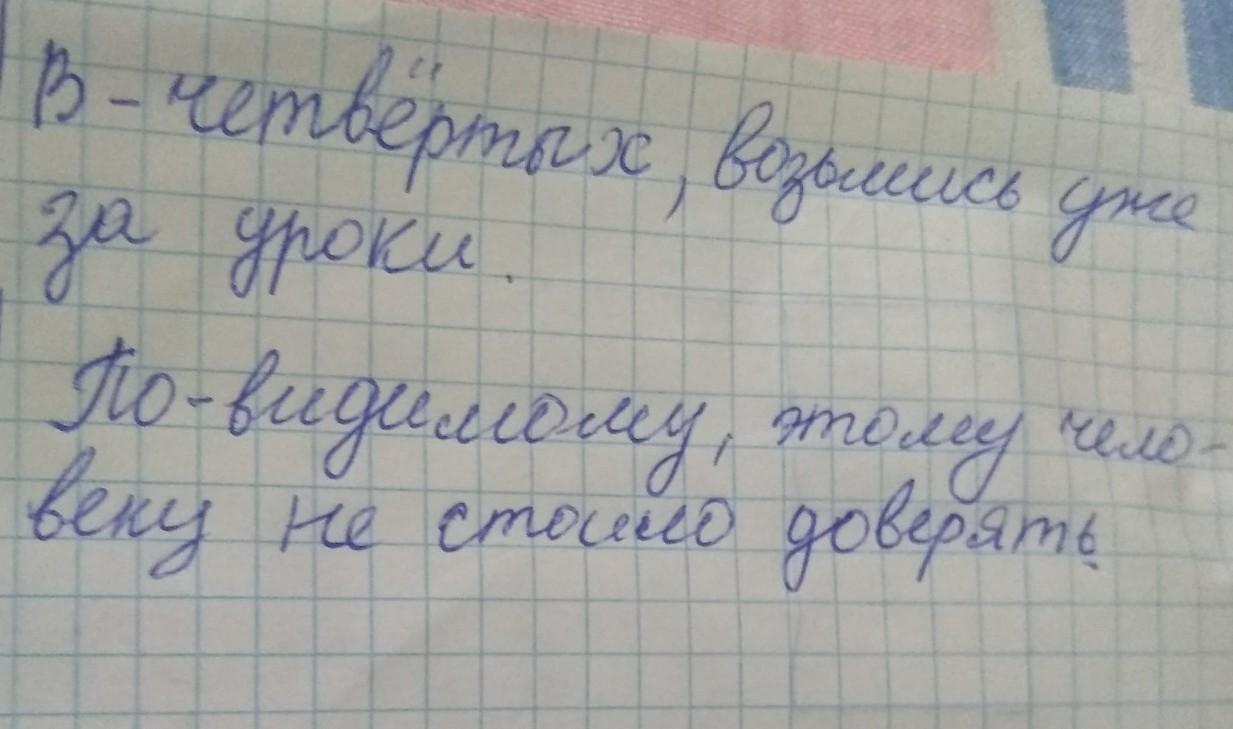 В-четвёртых, возьмись уже
за уроки.
По-видимому, этому чело-
веку не стоило доверять.